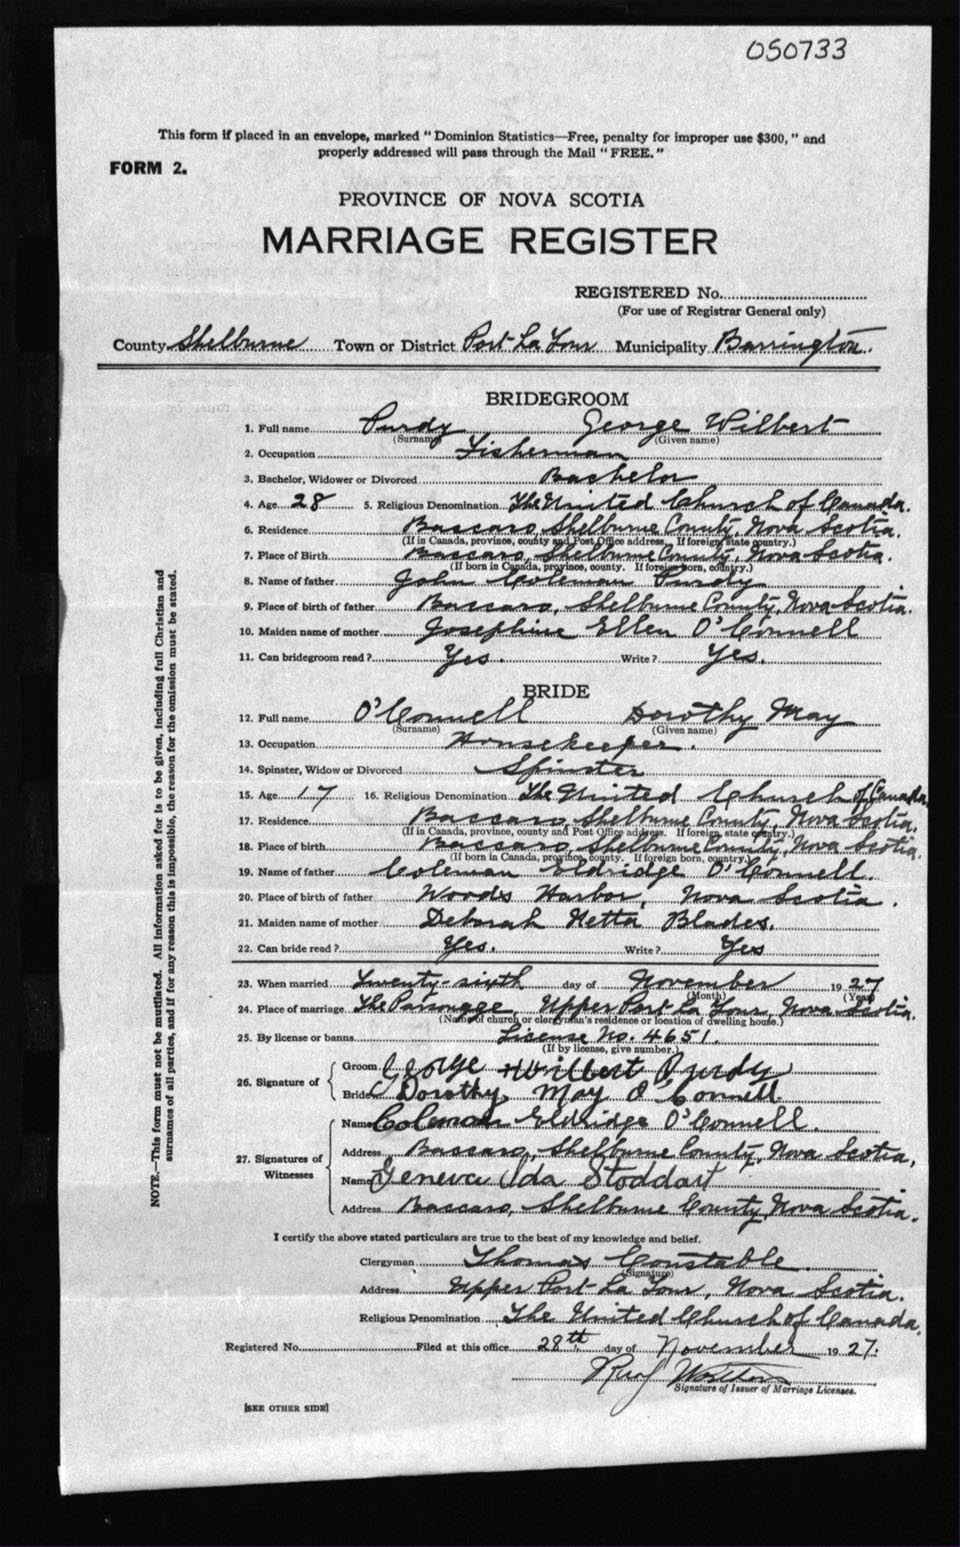 050733
This form if placed in an envelope, marked "Dominion Statistics—Free, penalty for improper use $300," and
properly addressed will pass through the Mail "FREE."
FORM 2.
PROVINCE OF NOVA SCOTIA
MARRIAGE REGISTER
REGISTERED No.
(For use of Registrar General only)
County Shelburne Town or District Port La Tour Municipality Barrington.
BRIDEGROOM
1. Full name Purdy George Wilbert
(Surname) (Given name)
2. Occupation Fisherman
3. Bachelor, Widower or Divorced Bachelor
4. Age 28 5. Religious Denomination The United Church of Canada.
6. Residence Baccaro, Shelburne County, Nova Scotia.
(If in Canada, province, county and Post Office address. If foreign state country.)
7. Place of Birth Baccaro, Shelburne County, Nova Scotia.
(If born in Canada, province, county. If foreign born, country.)
8. Name of father John Coleman Purdy
9. Place of birth of father Baccaro, Shelburne County, Nova Scotia.
10. Maiden name of mother Josephine Ellen O'Connell
11. Can bridegroom read? Yes. Write? Yes.
BRIDE
12. Full name O'Connell Dorothy May
(Surname) (Given name)
13. Occupation Housekeeper.
14. Spinster, Widow or Divorced Spinster
15. Age 17 16. Religious Denomination The United Church of Canada.
17. Residence Baccaro, Shelburne County, Nova Scotia.
(If in Canada, province, county and Post Office address. If foreign, state country.)
18. Place of birth Baccaro, Shelburne County, Nova Scotia.
(If born in Canada, province, county. If foreign born, country.)
19. Name of father Coleman Eldridge O'Connell.
20. Place of birth of father Woods Harbor, Nova Scotia.
21. Maiden name of mother Deborah Netta Blades.
22. Can bride read? Yes. Write? Yes
23. When married Twenty-sixth day of November 1927
(Month) (Year)
24. Place of marriage The Parsonage, Upper Port La Tour, Nova Scotia.
(Name of church or clergyman's residence or location of dwelling house.)
25. By license or banns License No. 4651.
(If by license, give number.)
26. Signature of
Groom George Wilbert Purdy
Bride Dorothy May O'Connell
27. Signatures of Witnesses
Name Coleman Eldridge O'Connell.
Address Baccaro, Shelburne County, Nova Scotia.
Name Geneva Ida Stoddart
Address Baccaro, Shelburne County, Nova Scotia.
I certify the above stated particulars are true to the best of my knowledge and belief.
Clergyman Thomas Constable.
(Signature)
Address Upper Port La Tour, Nova Scotia.
Religious Denomination The United Church of Canada.
Registered No. Filed at this office 28th day of November 1927.
Signature of Issuer of Marriage Licenses.
[SEE OTHER SIDE]
NOTE.—This form must not be mutilated. All information asked for is to be given, including full Christian and
surnames of all parties, and if for any reason this is impossible, the reason for the omission must be stated.